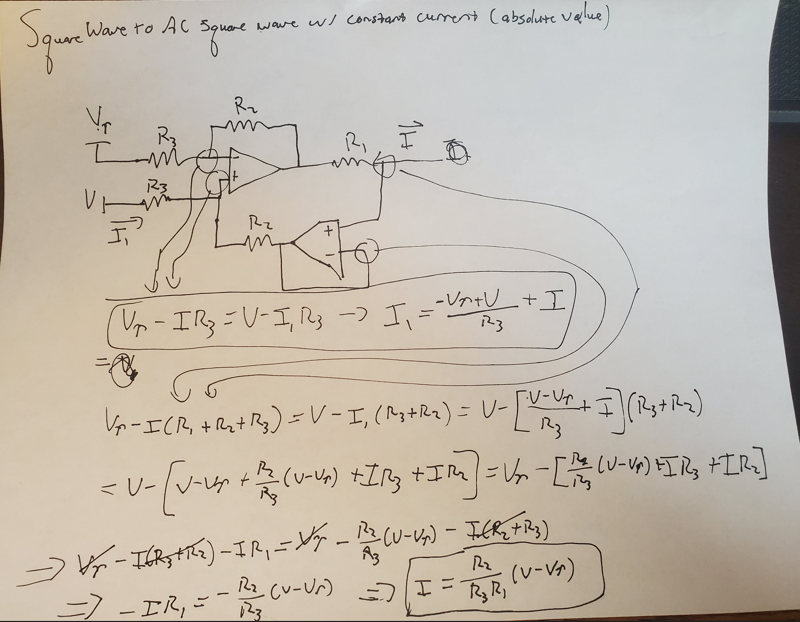 Square Wave to AC square wave w/ constant current (absolute value)
Vr
R2
R3
R1
I
V
R3
I1
R2
Vr - IR3 = V - I1R3 → I1 = (-Vr+V)/R3 + I
=
Vr - I(R1+R2+R3) = V - I1(R3+R2) = V - [(V-Vr)/R3 + I](R3+R2)
= V - [V-Vr + R2/R3 (V-Vr) + IR3 + IR2] = Vr - [R2/R3 (V-Vr) + IR3 + IR2]
⇒ Vr - I(R3+R2) - IR1 = Vr - R2/R3 (V-Vr) - I(R2+R3)
⇒ -IR1 = -R2/R3 (V-Vr) ⇒ I = R2/(R3R1) (V-Vr)